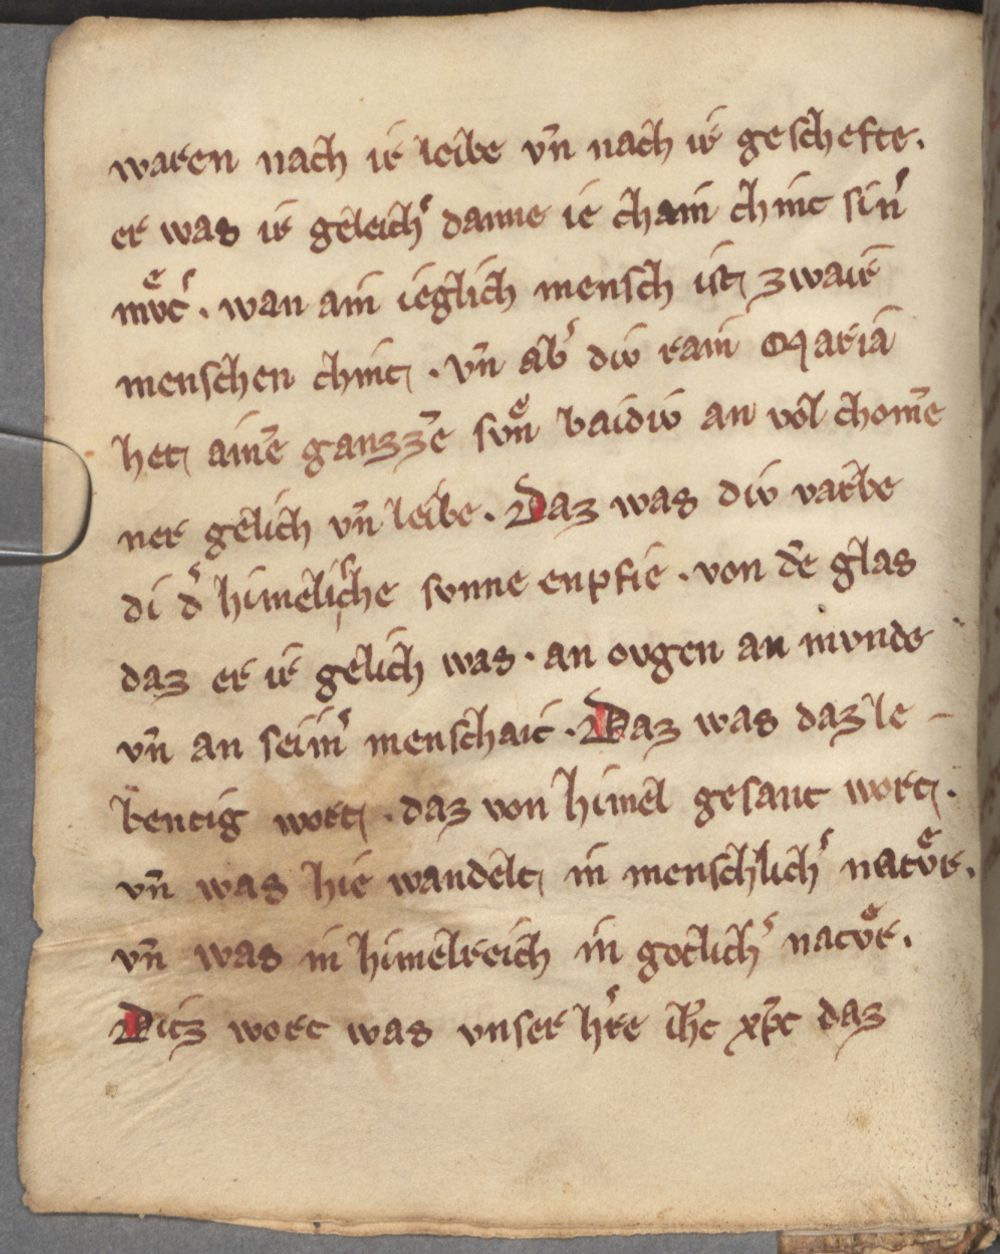 waren nach ir leibe vn̄ nach ir geschefte.
er was ir geleich͛ danne ie chain chint sin͛
mvͤt͛. wan ain ieglich mensch ist zwair
menschen chint. vn̄ ab͛ div rain Maria
het ain̄e ganzz̄e svͤn baidiv an vol chom̄e
ner gelich vn̄ leibe. Daz was div varbe
di d͛ himelische svnne enpfie. von dē glas
daz er ir gelich was. an ovgen an mvnde
vn̄ an seim͛ menschait. Daz was daz le-
bentig wort. daz von himel gesant wort.
vn̄ was hie wandelt in menschlich͛ natvͤr.
vn̄ was in himelreich in gotlich͛ natvͤr.
Ditz wort was vnser h͛re ih̄c xp̄c daz